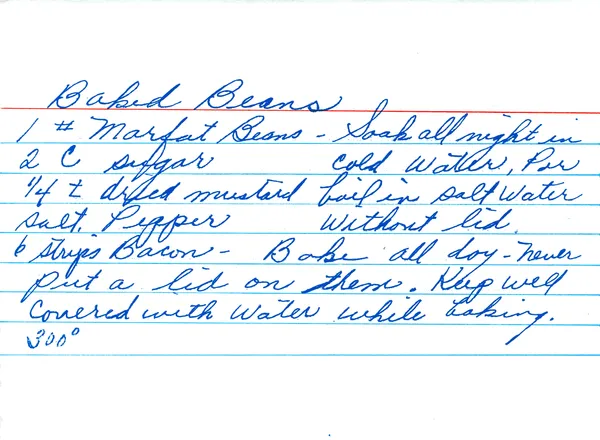 Baked Beans
1 # Marfat Beans - Soak all night in
2 C sugar cold water, Par
1/4 t dried mustard boil in salt water
salt, Pepper without lid.
6 strips Bacon - Bake all day - never
put a lid on them. Keep well
Covered with water while baking.
300°